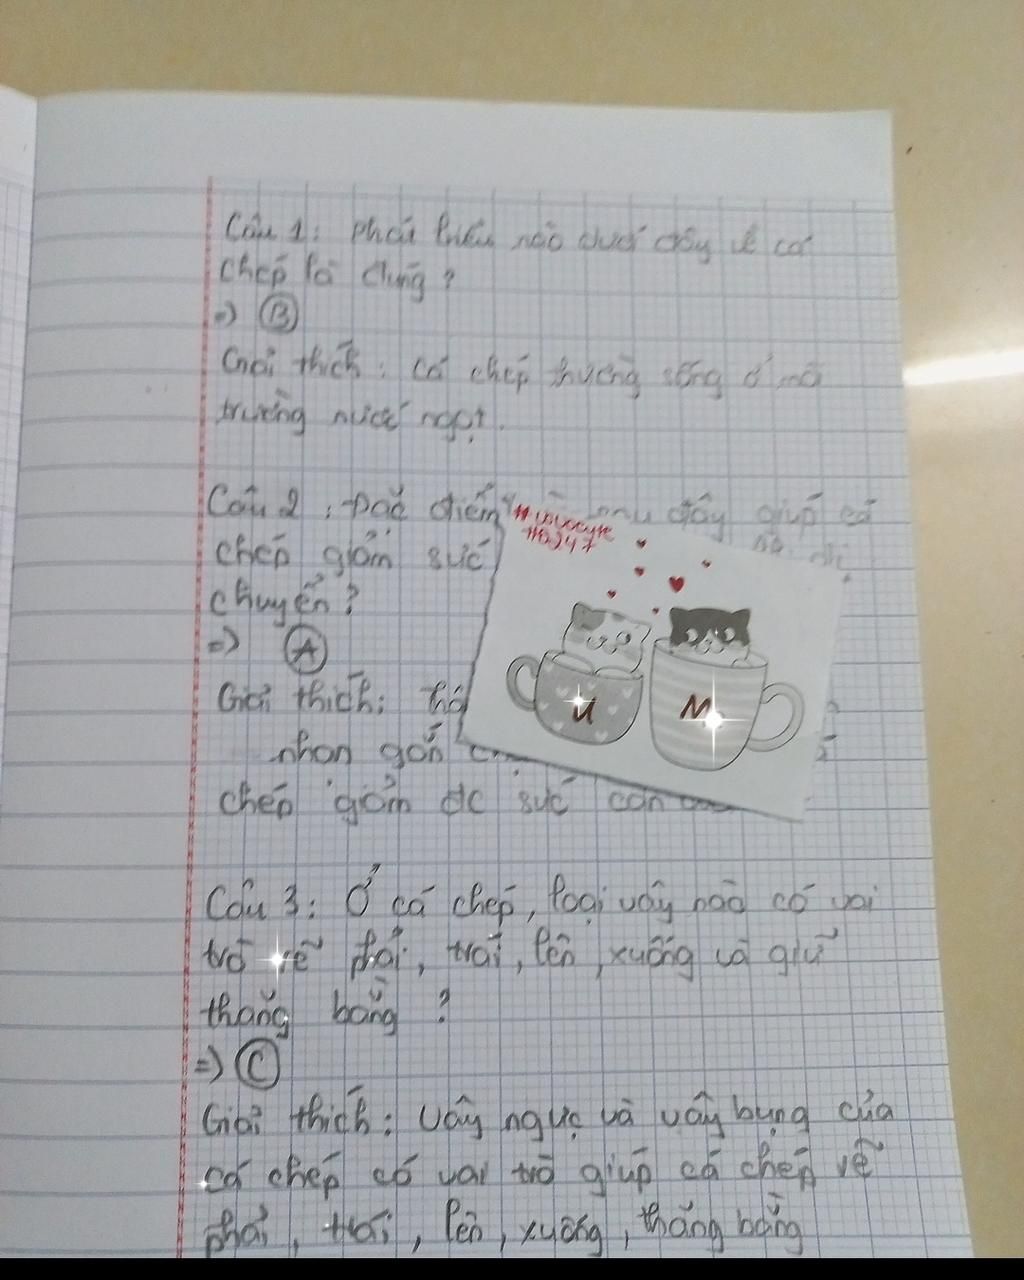 Câu 1: Phát biểu nào dưới đây về cá
chép là đúng?
=> B
Giải thích: Cá chép thường sống ở môi
trường nước ngọt.
Câu 2: Đặc điểm đây giúp cá
chép giảm sức
chuyển?
=> A
Giải thích:
nhọn gắn
chép giảm đc sức cản
U
M
Câu 3: Ở cá chép, loại vây nào có vai
trò rẽ phải, trái, lên, xuống và giữ
thăng bằng?
=> C
Giải thích: Vây ngực và vây bụng của
cá chép có vai trò giúp cá chép rẽ
phải, trái, lên, xuống, thăng bằng